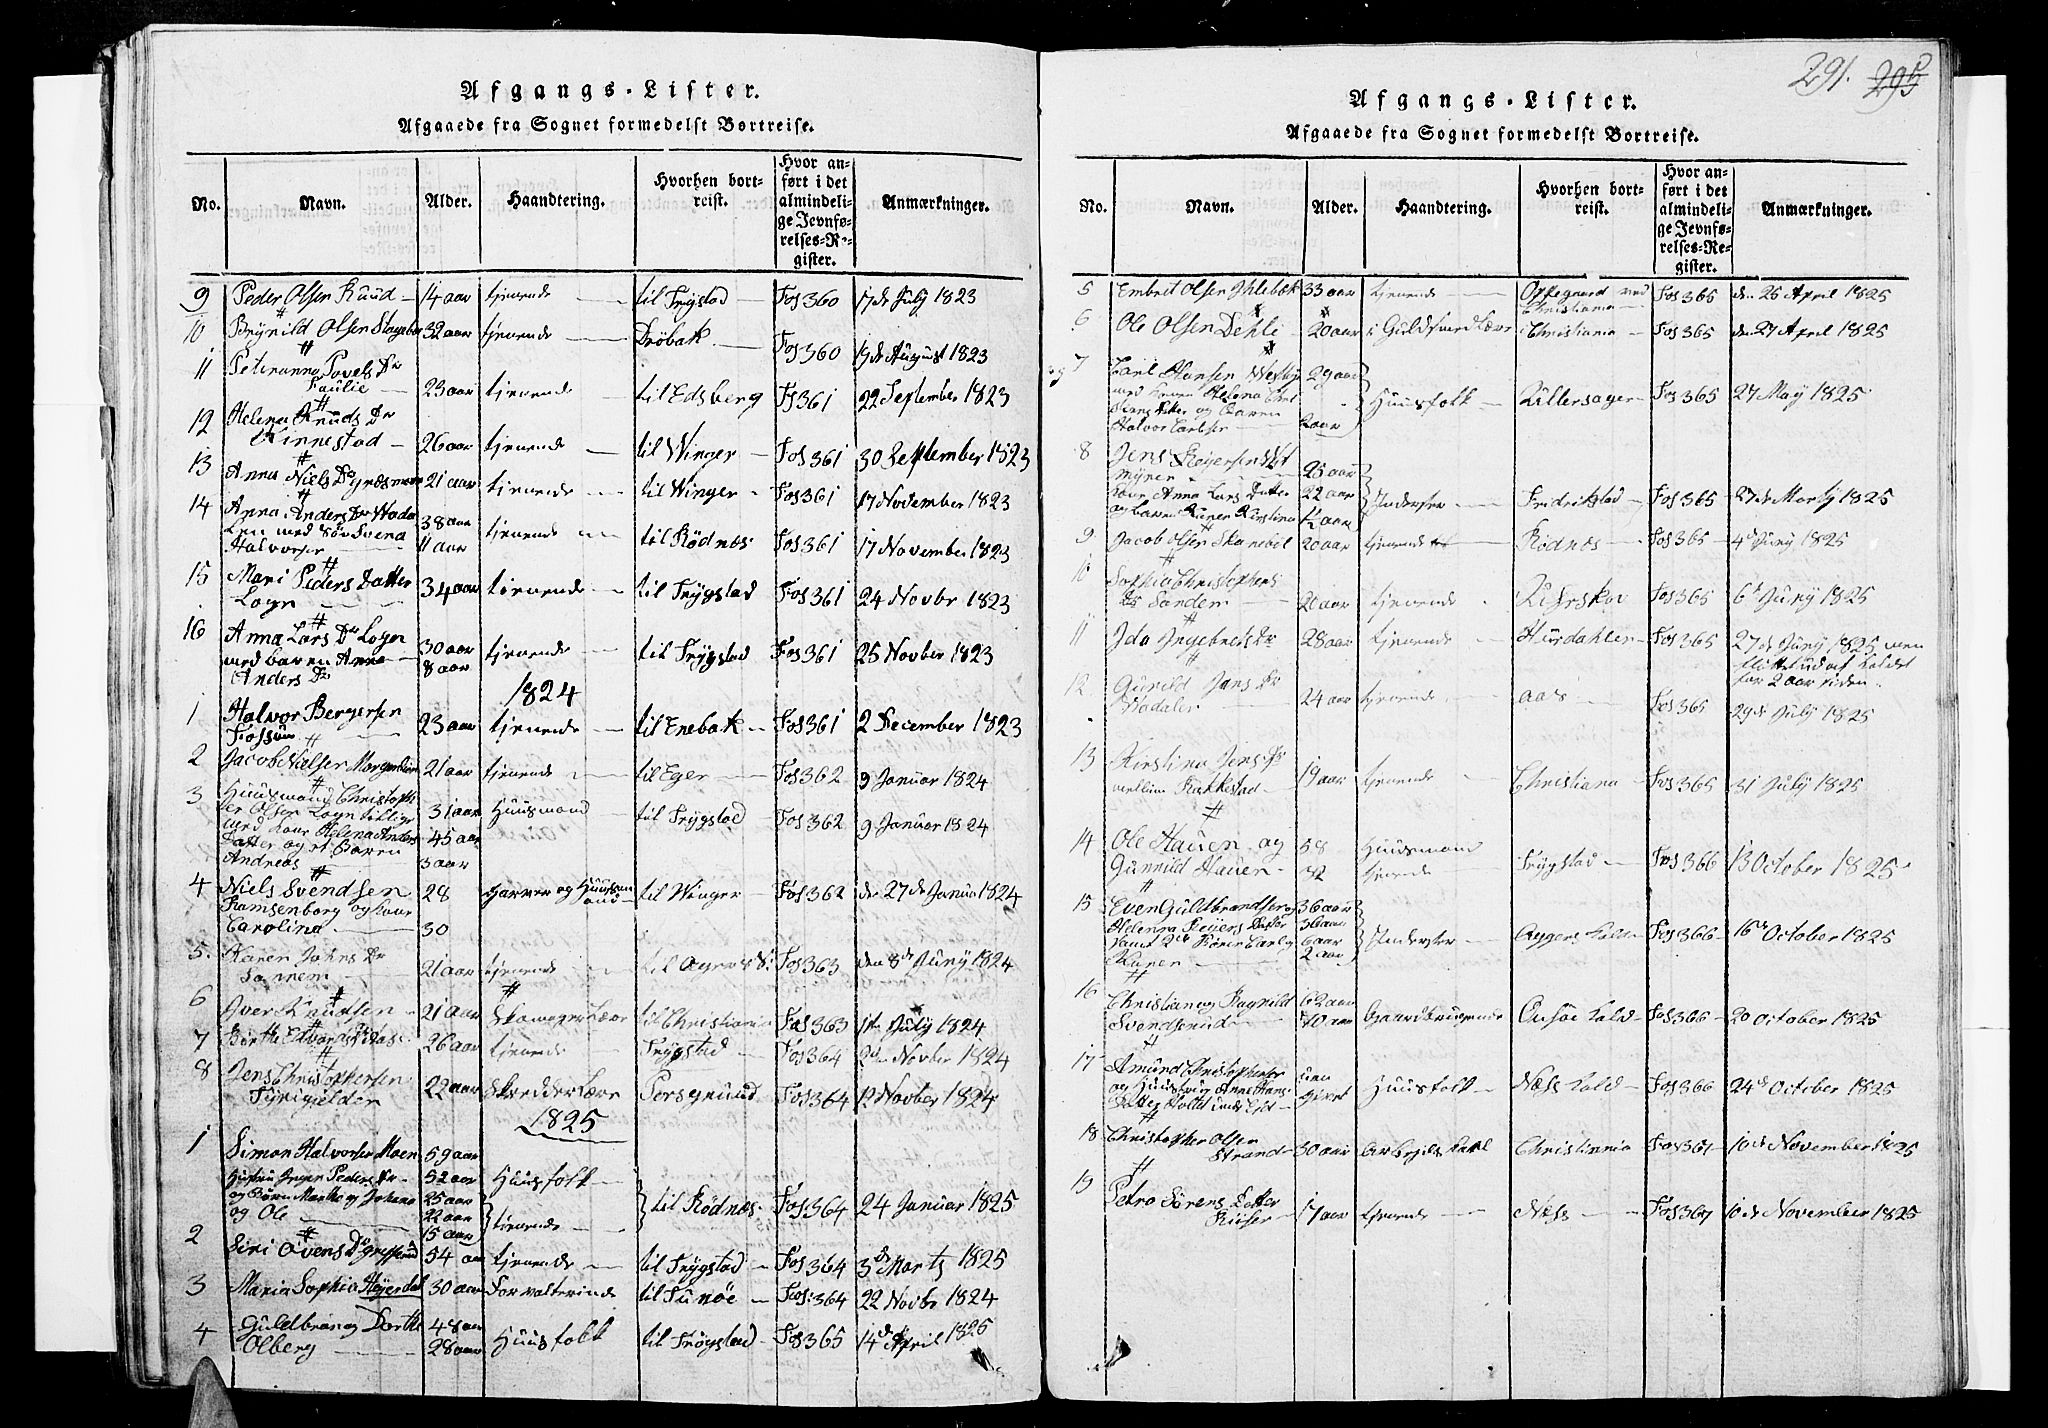 Afgangs-Lister.
Afgaaede fra Sognet formedelst Bortreise.
No. Navn. Alder. Haandtering. Hvorhen bortreist. Hvor anført i det almindelige Jevnførelses-Register. Anmærkninger.
9 Peder Olsen Ruud 14 aar tjenende til Trygstad Fos 360 17de July 1823
10 Brynild Olsen 32 aar tjenende Dröbak Fos 360 19de August 1823
11 Petronna Povels Dr
Faulie 23 aar tjenende til Edsberg Fs 361 22 September 1823
12 Helena Knuds Dr
Kinnestad 26 aar tjenende til Winger Fos 361 30 September 1823
13 Anna Niels Dr 21 aar tjenende til Winger Fos 361 17 November 1823
14 Anna Anders Dr
med Sön Svend 38 aar tjenende til Rödnæs Fos 361 17 November 1823
Halvorsen 11 aar
15 Mari Peders Datter 34 aar tjenende til Trygstad Fos 361 24 Novbr 1823
Logn
16 Anna Lars Dr Logn 30 aar tjenende til Trygstad Fos 361 25 Novber 1823
med baren Anna 8 aar
Anders Dr
1824
1 Halvor Bergersen 23 aar tjenende til Enebak Fos 361 2 December 1823
Fossum
2 Jacob Nielsen 21 aar tjenende til Eger Fos 362 9 Januar 1824
3 Huusmand Christoph
fer Olsen Logn tillige 31 aar Huusmand til Trygstad Fos 362 9 Januar 1824
med kone Helena Anders 45 aar
Datter og et Baren
Andreas 3 aar
4 Niels Svendsen 28 Garver og Huusmand til Winger Fos 362 den 27de Janua 1824
Ramsenborg og kone
Carolina 30
5. Karen Johns Dr
Sannem 21 aar tjenende til Fos 363 den 8de Juny 1824
6 Iver Knudsen 21 aar Skomager Lære til Christiania Fos 363 1te July 1824
7 Birthe 26 aar tjenende Trygstad Fos 364 2den Novber 1824
8 Jens Christophersen 22 aar Skredder Lære Porsgrund Fos 364 12 Novber 1824
1825
1 Simon Halvorsen Moen 59 aar
Hustru Inger Peders Dr 52 aar Huusfolk
og Börn Martha og Johana 25 aar til Rödnæs Fos: 364 24 Januar 1825
og Ole 22 aar tjenende
15 aar
2 Siri Ovens Dr 54 aar tjenende til Trygstad Fos 364 3de Marts 1825
3 Maria Sophia Heyerdal 30 aar Forvalterinde til Tunöe Fos: 364 22 Novbr 1824
4 Guldbran og Dorthe 48 aar
Olberg 28 aar Huusfolk til Trögstad Fos 365 14de April 1825
291. 295
Afgangs-Lister.
Afgaaede fra Sognet formedelst Bortreise.
No. Navn. Alder. Haandtering. Hvorhen bortreist. Hvor anført i det almindelige Jevnførelses-Register. Anmærkninger.
5 Embret Olsen 33 aar tjenende Oppegaard ved Christiania Fos 365 den 26 April 1825
6 Ole Olsen Dehli 20 aar i Guldsmed Lære i Christiania Fos 365 den 27 April 1825
7 Carl Hansen Westby 29 aar
med Konen Helena Christians Datter og Baren Huusfolk Fos 365 27 May 1825
Halvor Carlsen 2 aar
8 Jens 25 aar
Kone Anna Lars Datter 22 aar Inderster Fredrikstad Fos 365 27de Marty 1825
og baren Kirstina
9 Jacob Olsen 20 aar tjenende Rödnes Fos 365 4de Juny 1825
10 Sophia Christophers
Dr Sanden 20 aar tjenende Fos 365 6te Juny 1825
11 Ida Ingebrets Dr 28 aar tjenende Hurdahlen Fos 365 27de Juny 1825 men
for 2 aar siden
12 Gunild Jans Dr
24 aar tjenende aas Fos 365 29de July 1825
13 Kirstina Jens Dr
Rakkestad 19 aar tjenende Christiania Fos 365 31 July 1825
14 Ole Hauen og 58 Huusmand
Gunnild Hauen 32 tjenende Trygstad Fos 366 13 October 1825
15 Even Guldbrandsen og 36 aar
Helenna Reiers Datter 36 aar
samt 6 aar Inderster Fos 366 16de October 1825
Karen 2 aar
16 Christian og Ragnild 62 aar
Svendserud 70 aar Gaardbrugende Onsöe Fos 366 20 October 1825
17 Amund Christophersen
og Huustrue Anne Hans Huusfolk Næss Fos 366 24de October 1825
18 Christopher Olsen
Strand 30 aar Arbejds Karl Christiania Fos 367 10de November 1825
19 Petra Sörens Datter
17 aar tjenende Næss Fos 367 10de November 1825